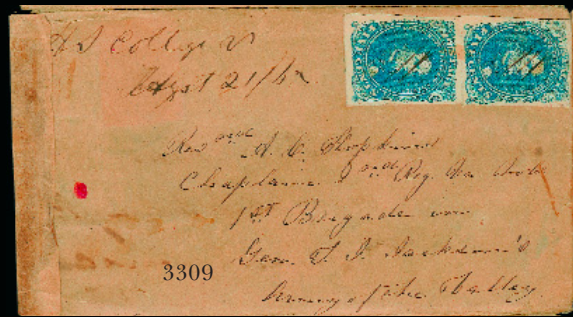 H S College V
Apr 21/62
Rev A. C. Hopkins
Chaplain 2nd Reg. Va Vols
1st Brigade
Gen. T. J. Jackson's
Army of the Valley
3309